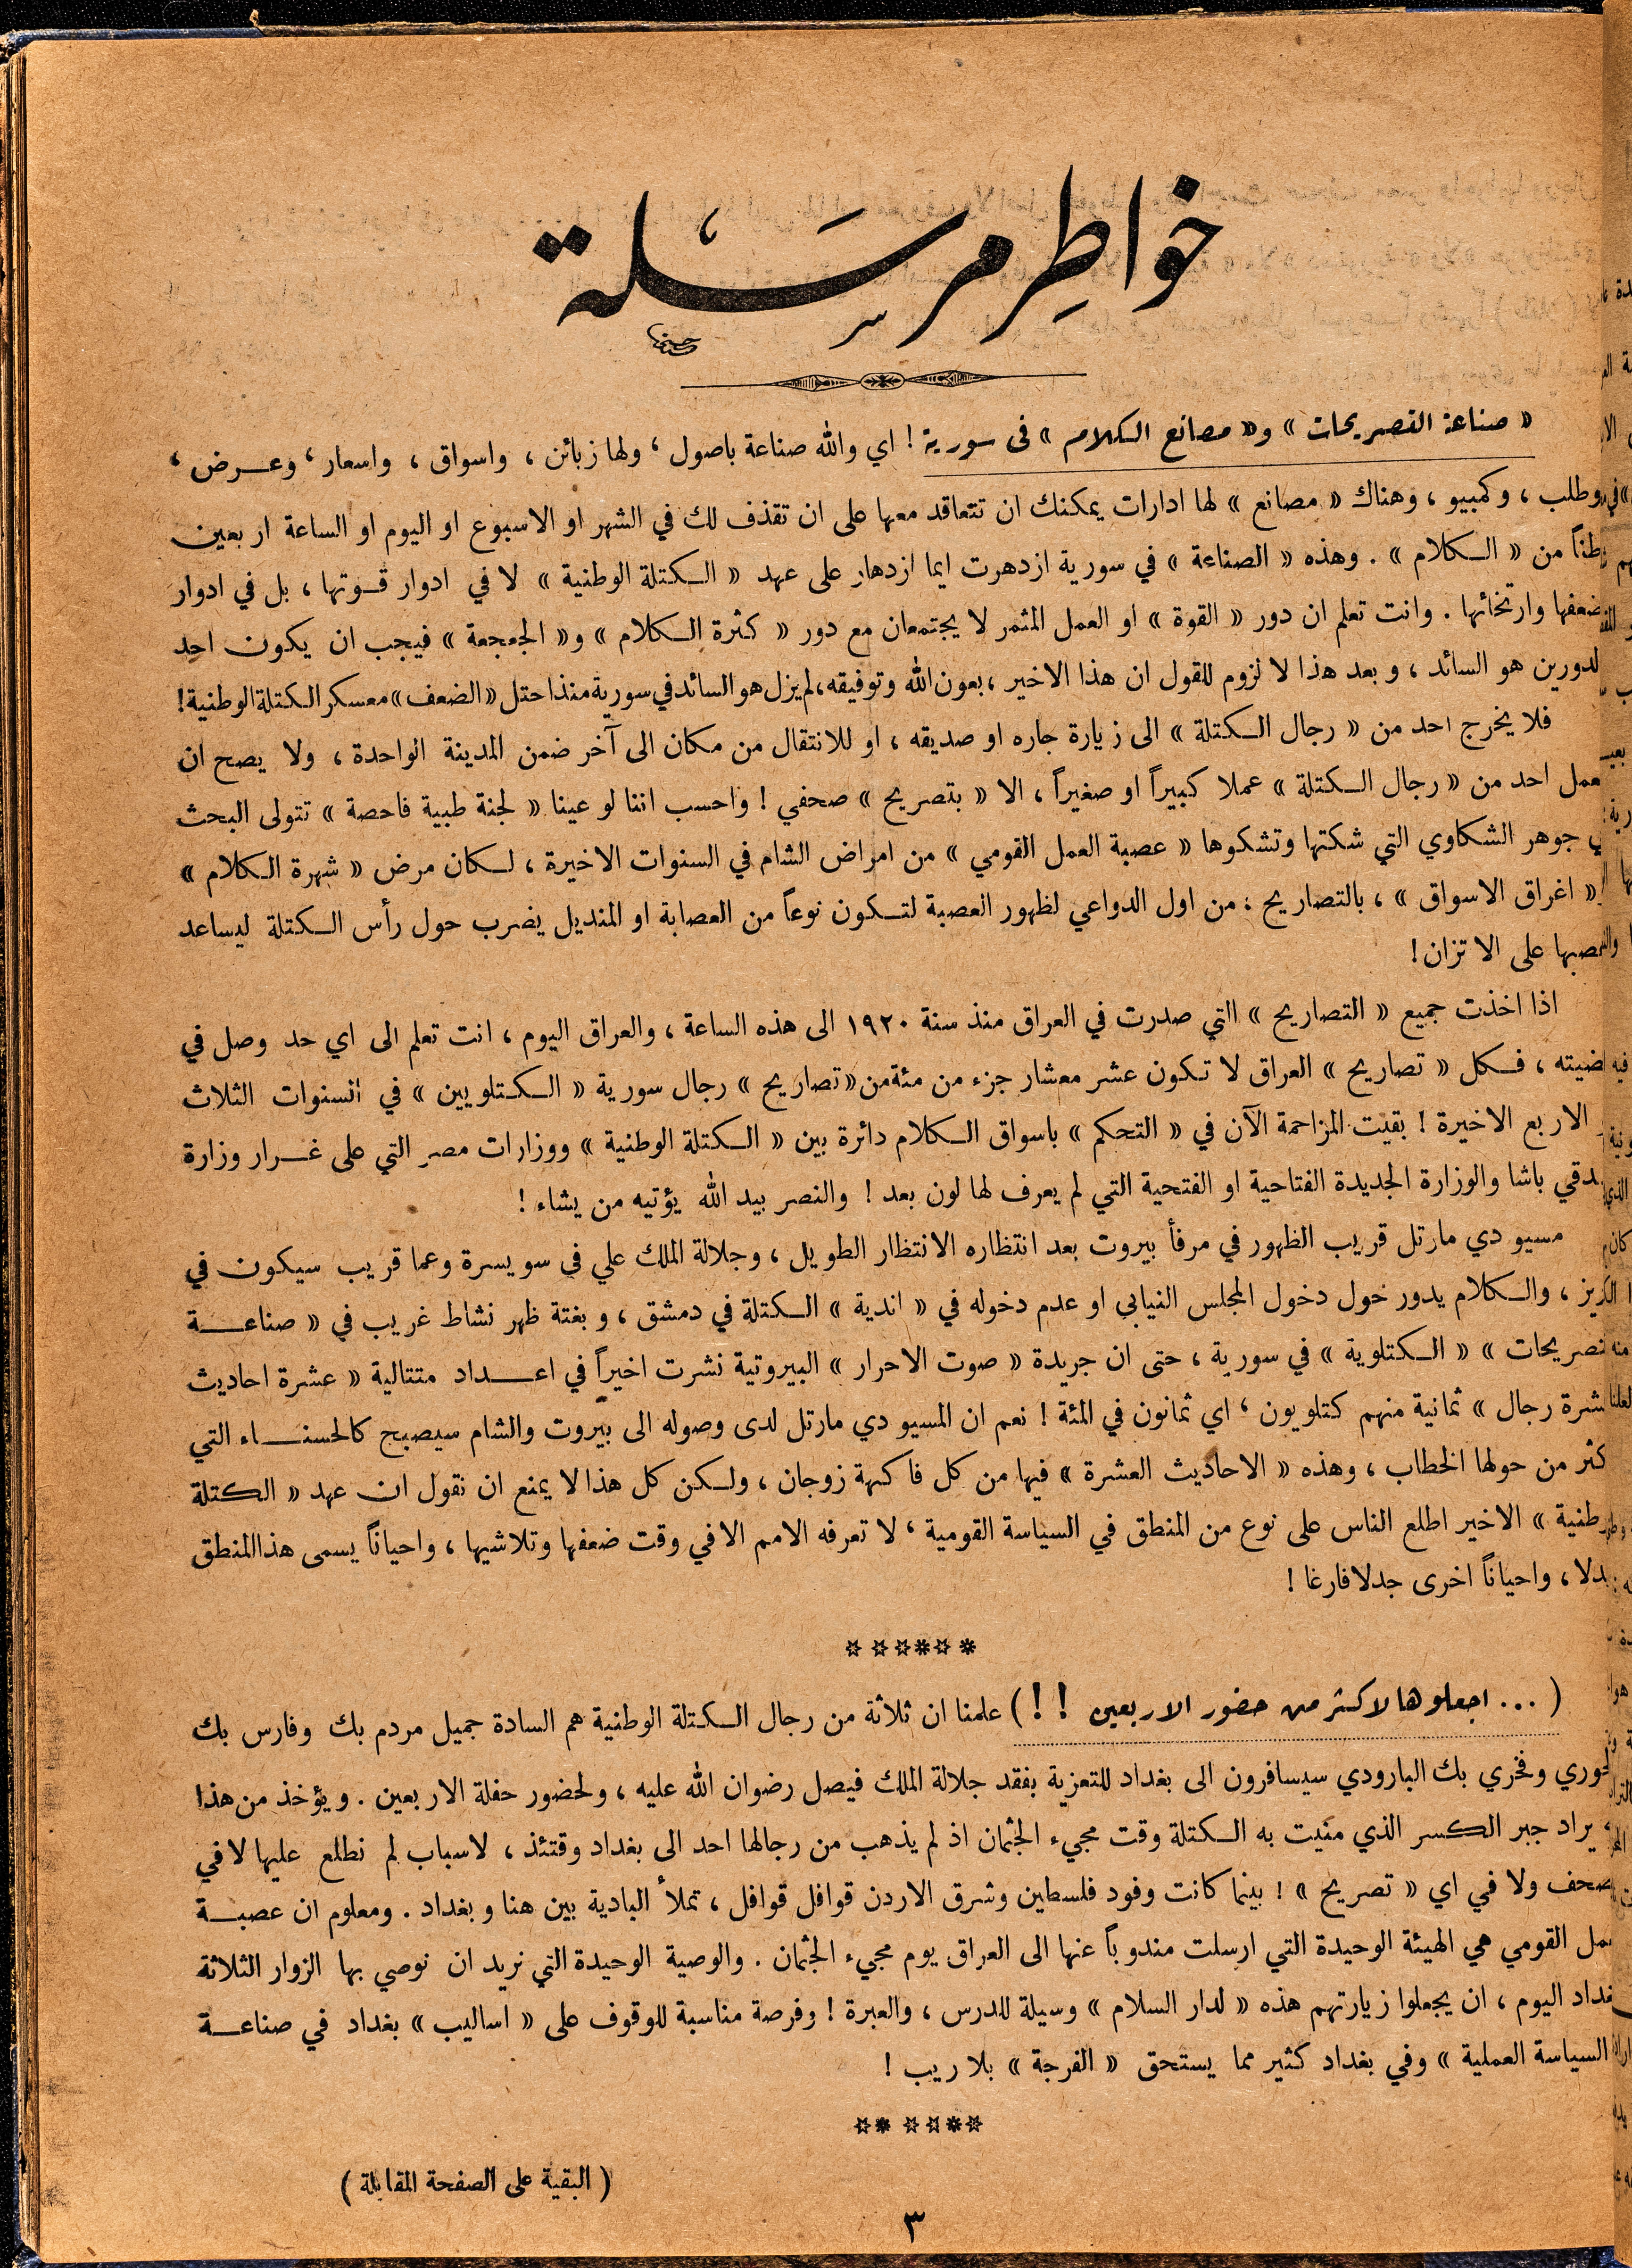 خواطر مرسلة
« صناعة التصريحات » و« مصانع الكلام » في سورية ! اي والله صناعة باصول ، ولها زبائن ، واسواق ، واسعار ، وعرض ،
وطلب ، وكمبيو ، وهناك « مصانع » لها ادارات يمكنك ان تتعاقد معها على ان تقذف لك في الشهر او الاسبوع او اليوم او الساعة اربعين
طناً من « الكلام » . وهذه « الصناعة » في سورية ازدهرت ايما ازدهار على عهد « الكتلة الوطنية » لا في ادوار قوتها ، بل في ادوار
ضعفها وارتخائها . وانت تعلم ان دور « القوة » او العمل المثمر لا يجتمعان مع دور « كثرة الكلام » و« الجعجعة » فيجب ان يكون احد
لدورين هو السائد ، وبعد هذا لا لزوم للقول ان هذا الاخير ، بعون الله وتوفيقه ، لم يزل هو السائد في سورية منذ احتل « الضعف » معسكر الكتلة الوطنية !
فلا يخرج احد من « رجال الكتلة » الى زيارة جاره او صديقه ، او للانتقال من مكان الى آخر ضمن المدينة الواحدة ، ولا يصح ان
عمل احد من « رجال الكتلة » عملا كبيراً او صغيراً ، الا « بتصريح » صحفي ! واحسب اننا لو عينا « لجنة طبية فاحصة » تتولى البحث
ي جوهر الشكاوي التي شكتها وتشكوها « عصبة العمل القومي » من امراض الشام في السنوات الاخيرة ، لكان مرض « شهرة الكلام »
« اغراق الاسواق » ، بالتصاريح ، من اول الدواعي لظهور العصبة لتكون نوعاً من العصابة او المنديل يضرب حول رأس الكتلة ليساعد
صبها على الاتزان !
اذا اخذت جميع « التصاريح » التي صدرت في العراق منذ سنة ١٩٢٠ الى هذه الساعة ، والعراق اليوم ، انت تعلم الى اي حد وصل في
ضيته ، فكل « تصاريح » العراق لا تكون عشر معشار جزء من مئة من « تصاريح » رجال سورية « الكتلويين » في السنوات الثلاث
الاربع الاخيرة ! بقيت المزاحمة الآن في « التحكم » باسواق الكلام دائرة بين « الكتلة الوطنية » ووزارات مصر التي على غرار وزارة
دقي باشا والوزارة الجديدة الفتاحية او الفتحية التي لم يعرف لها لون بعد ! والنصر بيد الله يؤتيه من يشاء !
مسيو دي مارتل قريب الظهور في مرفأ بيروت بعد انتظاره الانتظار الطويل ، وجلالة الملك علي في سويسرة وعما قريب سيكون في
ريز ، والكلام يدور حول دخول المجلس النيابي او عدم دخوله في « اندية » الكتلة في دمشق ، وبغتة ظهر نشاط غريب في « صناعة
تصريحات » « الكتلوية » في سورية ، حتى ان جريدة « صوت الاحرار » البيروتية نشرت اخيراً في اعداد متتالية « عشرة احاديث
شرة رجال » ثمانية منهم كتلويون ، اي ثمانون في المئة ! نعم ان المسيو دي مارتل لدى وصوله الى بيروت والشام سيصبح كالحسناء التي
كثر من حولها الخطاب ، وهذه « الاحاديث العشرة » فيها من كل فاكهة زوجان ، ولكن كل هذا لا يمنع ان نقول ان عهد « الكتلة
وطنية » الاخير اطلع الناس على نوع من المنطق في السياسة القومية ، لا تعرفه الامم الا في وقت ضعفها وتلاشيها ، واحياناً يسمى هذا المنطق
دلا ، واحياناً اخرى جدلا فارغا !
( ... اجعلوها لاكثر من حضور الاربعين ! ! ) علمنا ان ثلاثة من رجال الكتلة الوطنية هم السادة جميل مردم بك وفارس بك
لخوري وفخري بك البارودي سيسافرون الى بغداد للتعزية بفقد جلالة الملك فيصل رضوان الله عليه ، ولحضور حفلة الاربعين . ويؤخذ من هذا
يراد جبر الكسر الذي منيت به الكتلة وقت مجيء الجثمان اذ لم يذهب من رجالها احد الى بغداد وقتئذ ، لاسباب لم نطلع عليها لا في
صحف ولا في اي « تصريح » ! بينما كانت وفود فلسطين وشرق الاردن قوافل قوافل ، تملأ البادية بين هنا وبغداد . ومعلوم ان عصبة
مل القومي هي الهيئة الوحيدة التي ارسلت مندوباً عنها الى العراق يوم مجيء الجثمان . والوصية الوحيدة التي نريد ان نوصي بها الزوار الثلاثة
غداد اليوم ، ان يجعلوا زيارتهم هذه « لدار السلام » وسيلة للدرس ، والعبرة ! وفرصة مناسبة للوقوف على « اساليب » بغداد في صناعة
السياسة العملية » وفي بغداد كثير مما يستحق « الفرجة » بلا ريب !
( البقية على الصفحة المقابلة )
٣